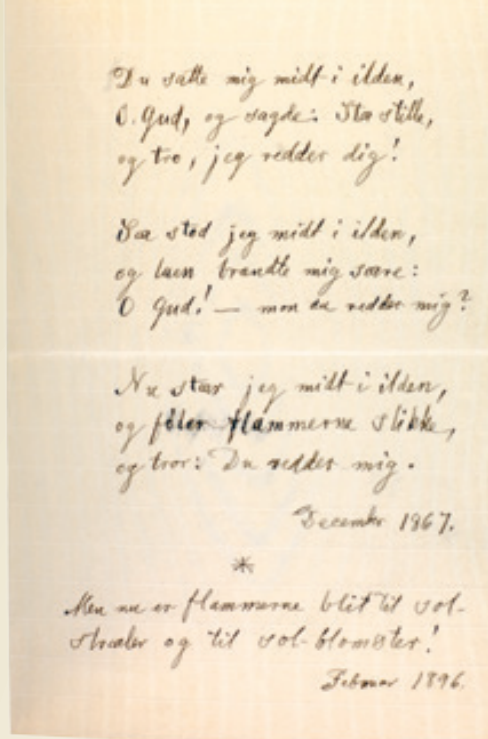 Du satte mig midt i ilden,
O Gud, og sagde: Staa stille,
og tro, jeg redder dig!
Saa stod jeg midt i ilden,
og luen brændte mig saare:
O Gud! — mon du redder mig?
Nu staar jeg midt i ilden,
og føler flammerne slikke,
og tror: Du redder mig.
December 1867.
*
Men nu er flammerne blit til sol-
straaler og til sol-blomster!
Februar 1896.